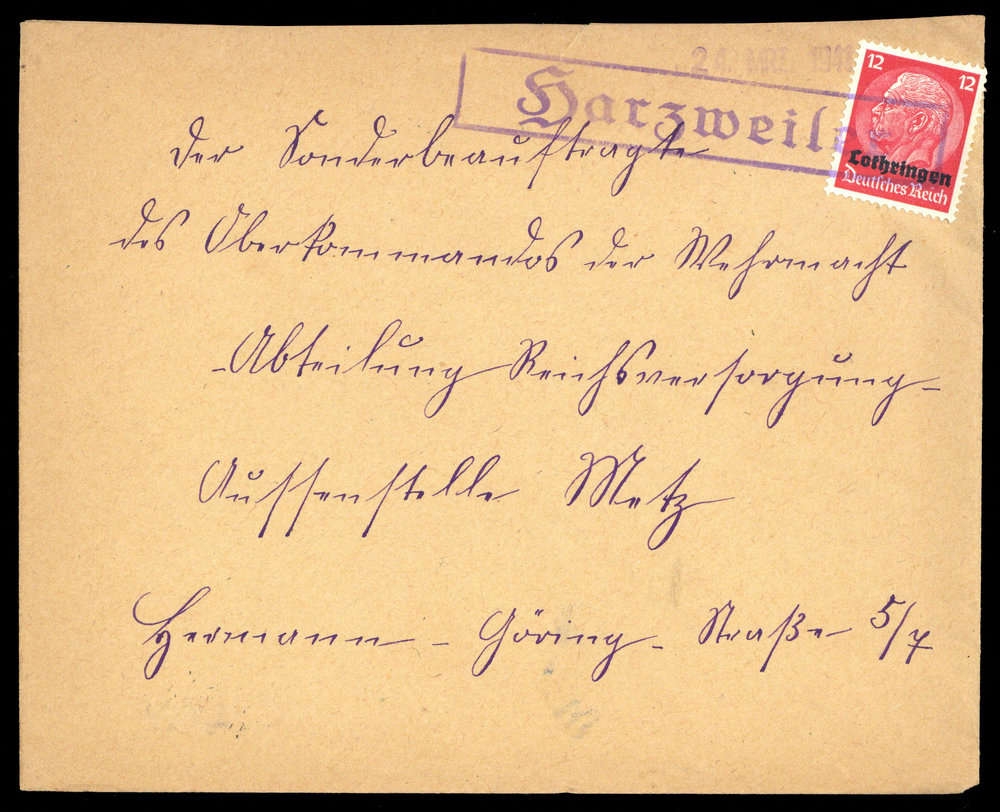 24. MRZ. 1941
Harzweiler
12 12
Lothringen
Deutsches Reich
Der Sonderbeauftragte
des Oberkommandos der Wehrmacht
-Abteilung Reichsversorgung-
Aussenstelle Metz
Hermann - Göring - Straße 5/7